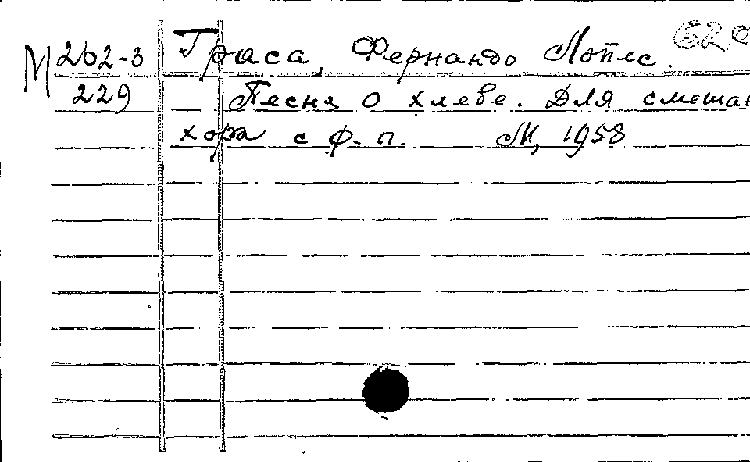 М 262-3 Граса, Фернандо Лопес.
229 Песня о хлебе. Для смешан
хора с ф-п. М, 1958